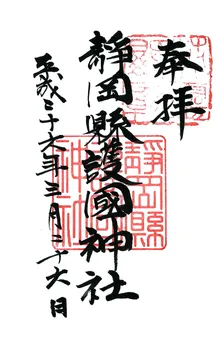 奉拝
靜岡縣護國神社
平成二十六年三月二十六日
靜岡縣
護國
神社